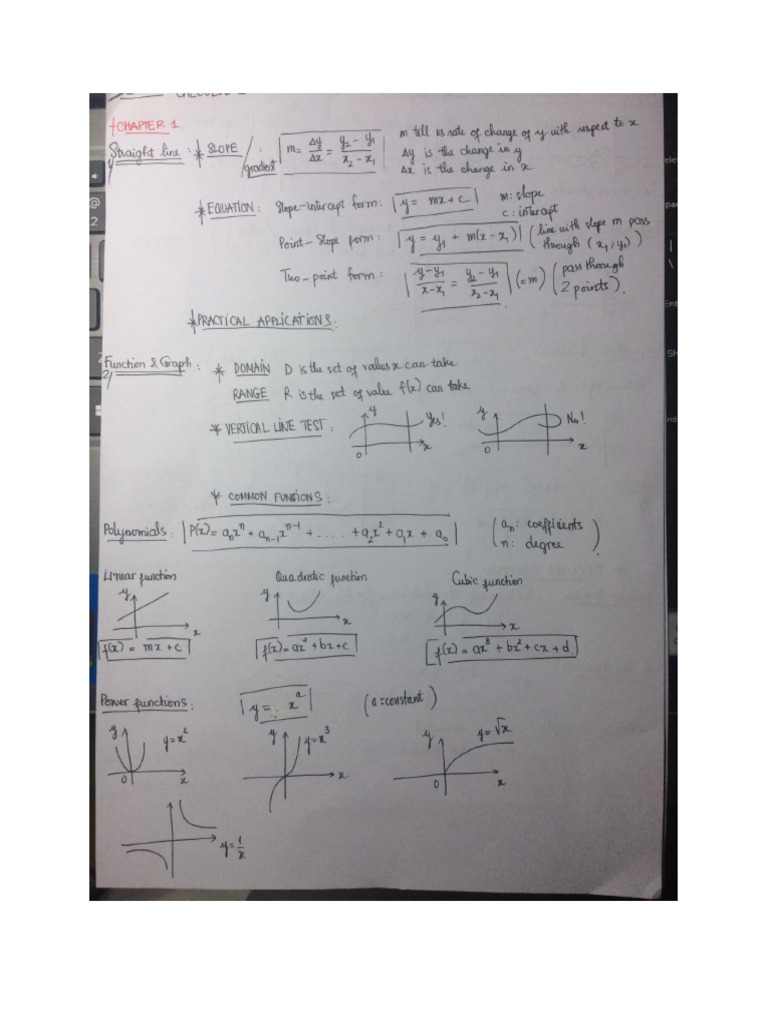 CALCULUS
CHAPTER 1.
1/ Straight line: * SLOPE / gradient m = Δy/Δx = (y₂ - y₁)/(x₂ - x₁)
m tell us rate of change of y with respect to x
Δy is the change in y
Δx is the change in x
* EQUATION: Slope-intercept form: y = mx + c m: slope
c: intercept
Point-Slope form: y = y₁ + m(x - x₁) (line with slope m pass through (x₁, y₁))
Two-point form: (y - y₁)/(x - x₁) = (y₂ - y₁)/(x₂ - x₁) (= m) (pass through 2 points).
* PRACTICAL APPLICATIONS:
2/ Function & Graph: * DOMAIN D is the set of values x can take
RANGE R is the set of value f(x) can take
* VERTICAL LINE TEST: y x 0 Yes! y x 0 No!
* COMMON FUNSIONS:
Polynomials: P(x) = aₙxⁿ + aₙ₋₁xⁿ⁻¹ + .... + a₂x² + a₁x + a₀ (aₙ: coefficients
n: degree)
Linear function Quadratic function Cubic function
y x y x y x
f(x) = mx + c f(x) = ax² + bx + c f(x) = ax³ + bx² + cx + d
Power functions: y = xᵃ (a = constant)
y y = x² 0 x y y = x³ x y y = √x 0 x
y = 1/x